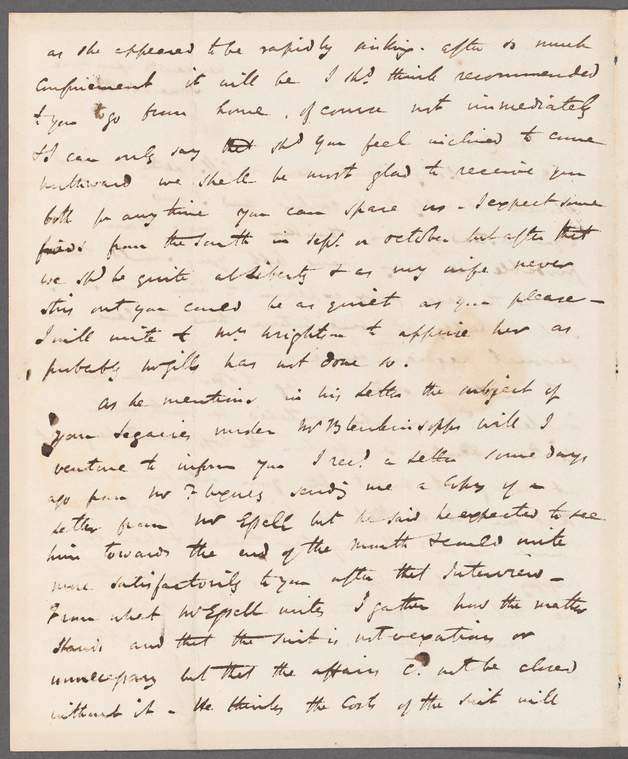 as she appeared to be rapidly sinking. after so much
Confinement it will be I shd. think recommended
to you to go from home, of course not immediately
& I can only say that shd you feel inclined to come
Northward we shall be most glad to receive you
both for any time you can spare us - I expect some
from the South in Sept. or October but after that
we shd be quite at Liberty & as my wife never
stirs out you could be as quiet as you please -
I will write to Mrs Wrighton to apprise her as
probably Mr Gill has not done so.
As he mentions in his Letter the subject of
your Legacies under Mr Blenkinsopps will I
venture to inform you I recd. a Letter some days
ago from Mr sending me a Copy of a
Letter from Mr Epsell but he said he expected to see
him towards the end of the Month & could write
more satisfactorily to you after that Interview -
From what Mr Epsell writes I gather how the matter
stands and that the Suit is not vexatious or
unnecessary but that the affairs cd. not be closed
without it - He thinks the Costs of the Suit will